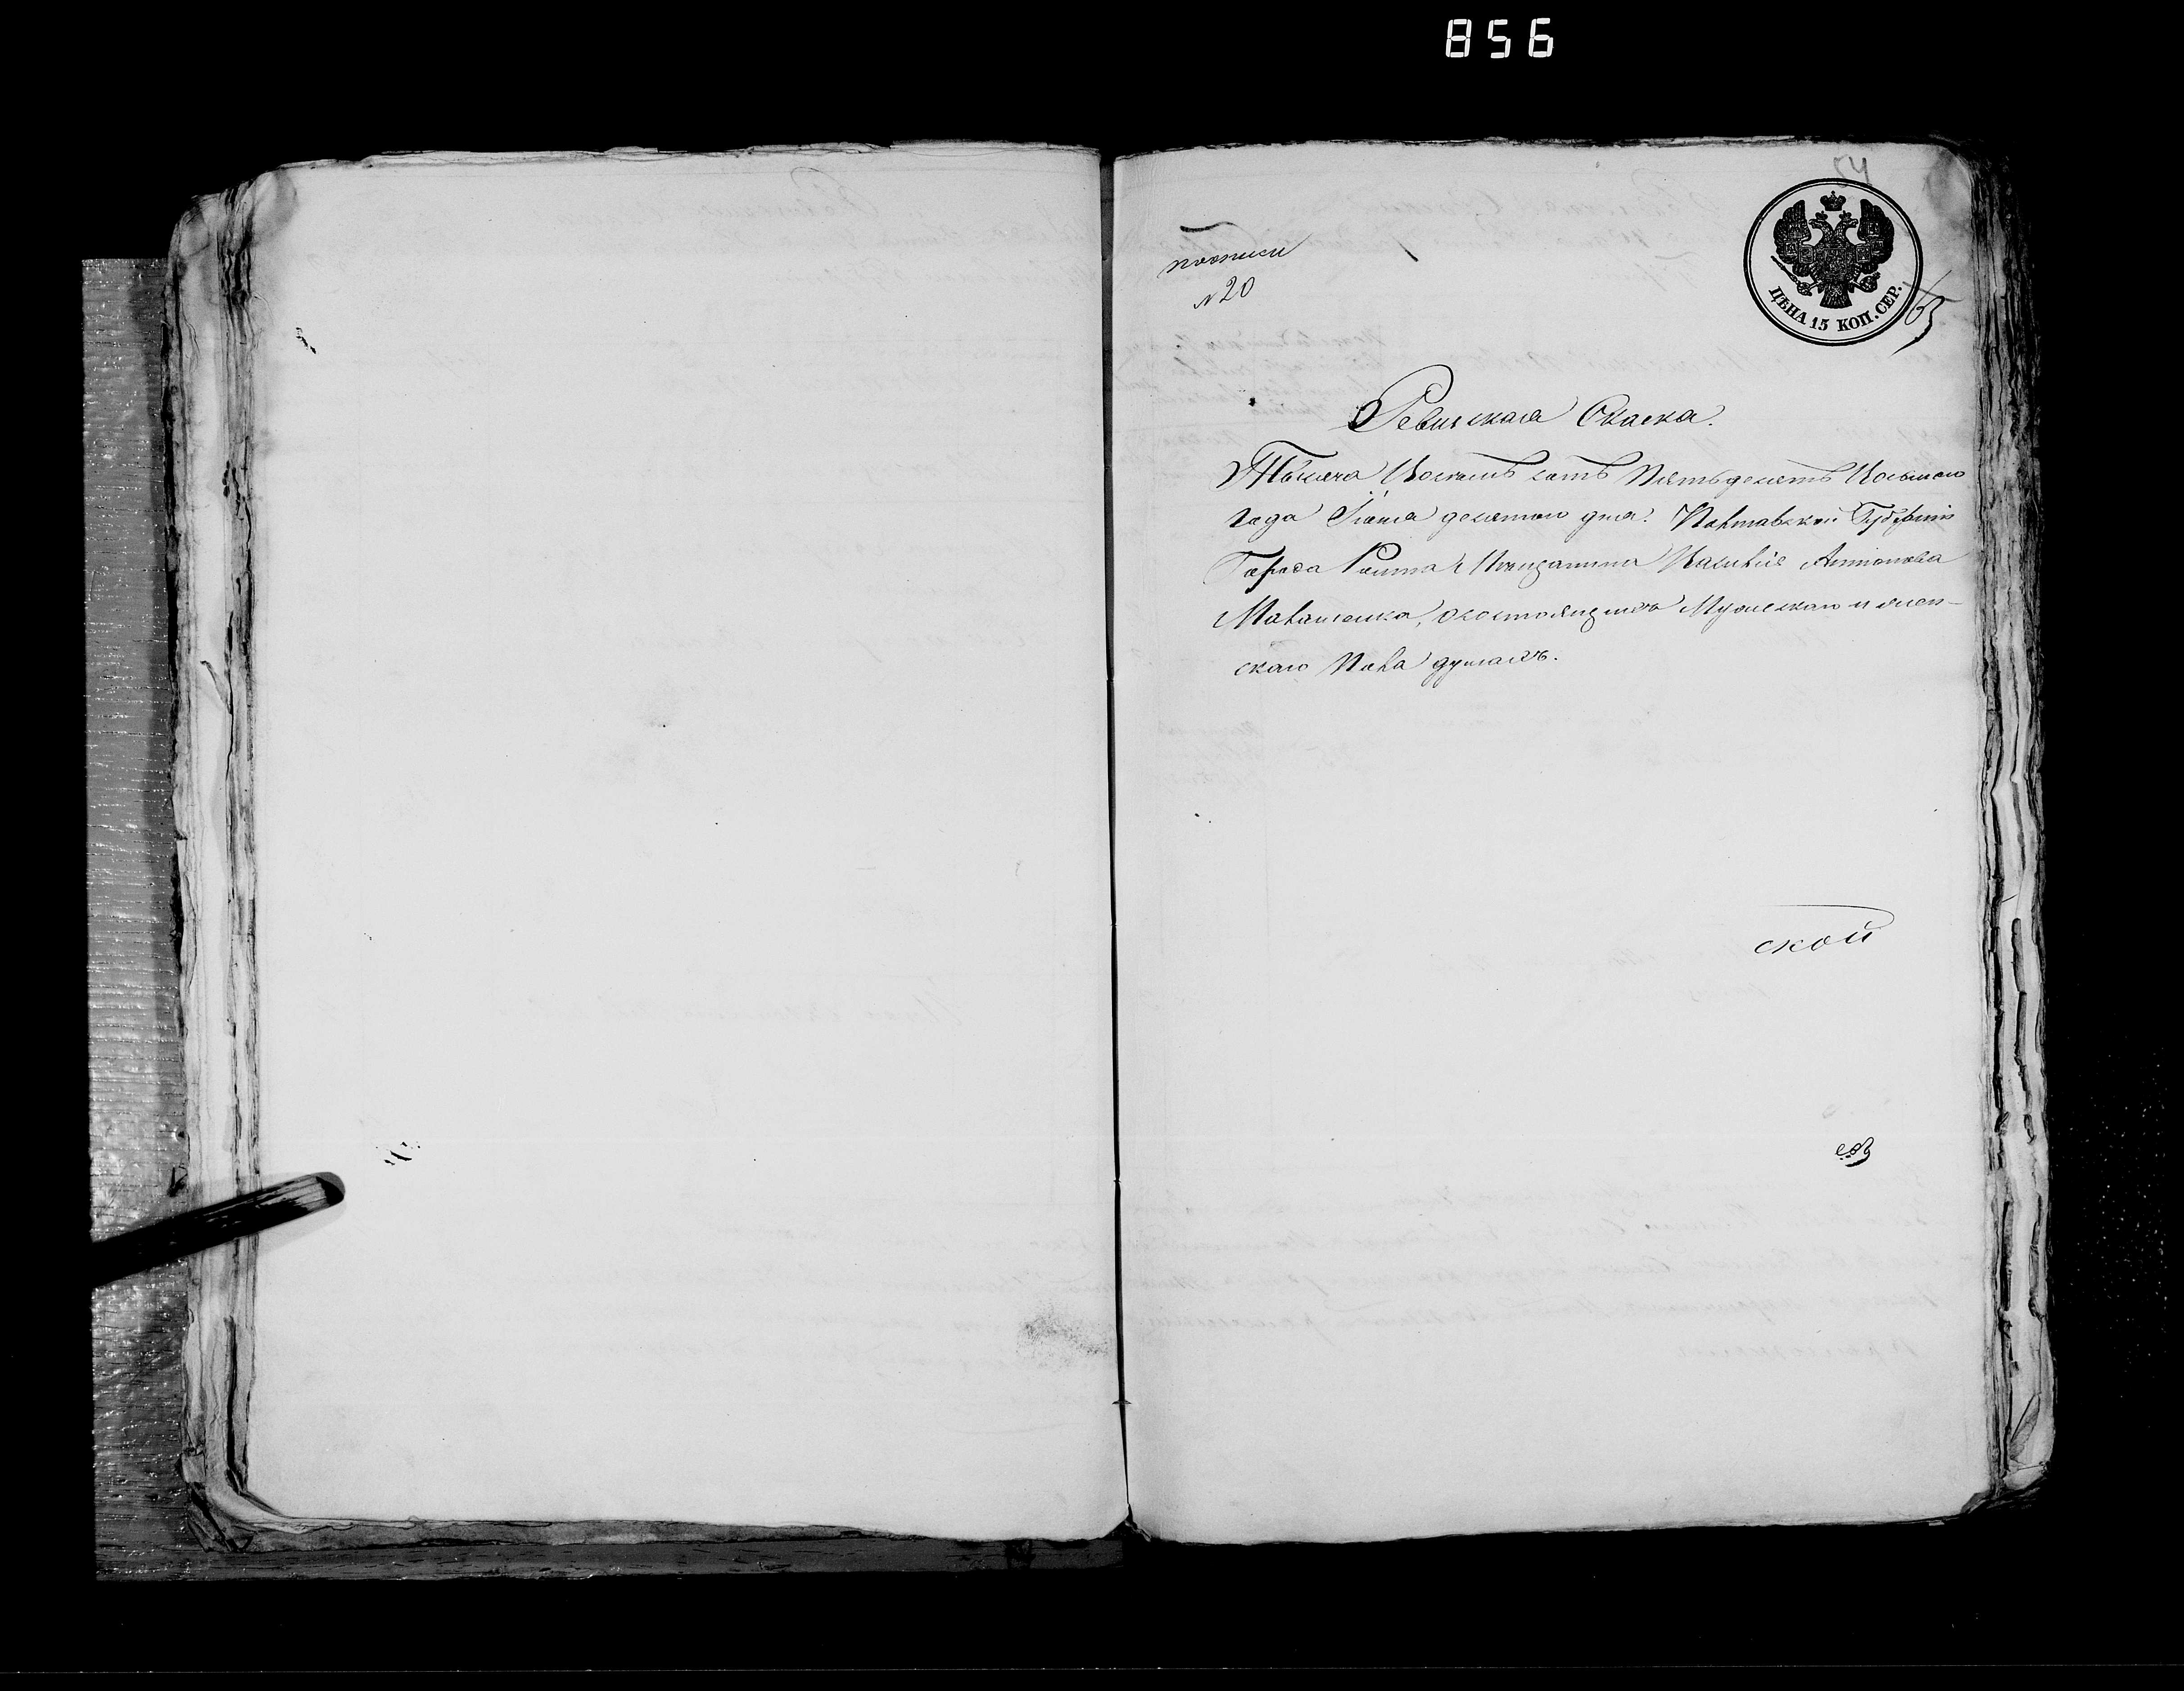 856
54
поописи
№ 20
ЦѢНА 15 КОП. СЕР.
65
Ревизская Сказка.
Тысяча Восемь сотъ Пятьдесятъ Восьмого
Года Іюня десятого дня. Полтавской Губерніи
Города Ромна Мѣщанина Василія Антонова
Малашенка, о состоящихъ Мужескаго и жен-
скаго Пола душахъ.
ской